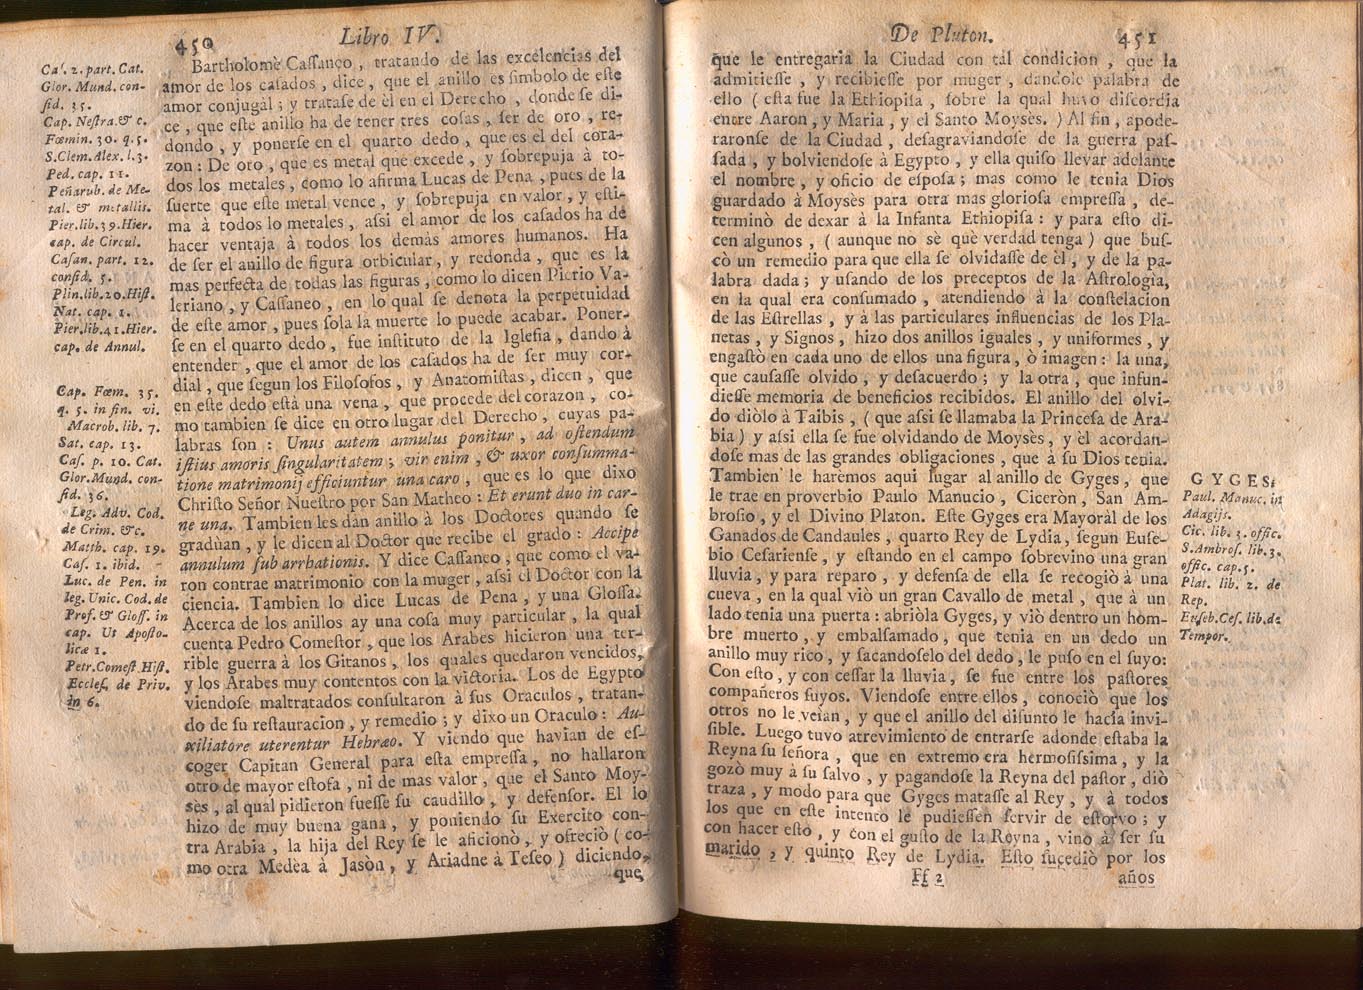 450
Libro IV.
Bartholomè Caſſaneo , tratando de las excelencias del
amor de los caſados , dice , que el anillo es ſimbolo de eſte
amor conjugàl ; y trataſe de èl en el Derecho , donde ſe di-
ce , que eſte anillo ha de tener tres coſas , ſer de oro , re-
dondo , y ponerſe en el quarto dedo , que es el del cora-
zon : De oro , que es metal que excede , y ſobrepuja à to-
dos los metales , como lo afirma Lucas de Pena , pues de la
ſuerte que eſte metal vence , y ſobrepuja en valor , y eſti-
ma à todos lo metales , aſsi el amor de los caſados ha de
hacer ventaja à todos los demàs amores humanos. Ha
de ſer el anillo de figura orbicular , y redonda , que es la
mas perfecta de todas las figuras , como lo dicen Pierio Va-
leriano , y Caſſaneo , en lo qual ſe denota la perpetuidad
de eſte amor , pues ſola la muerte lo puede acabar. Poner-
ſe en el quarto dedo , fue inſtituto de la Igleſia , dando à
entender , que el amor de los caſados ha de ſer muy cor-
dial , que ſegun los Filoſofos , y Anatomiſtas , dicen , que
en eſte dedo eſtà una vena , que procede del corazon , co-
mo tambien ſe dice en otro lugar del Derecho , cuyas pa-
labras ſon : Unus autem annulus ponitur , ad oſtendum
iſtius amoris ſingularitatem ; vir enim , & uxor conſumma-
tione matrimonij efficiuntur una caro , que es lo que dixo
Chriſto Señor Nueſtro por San Matheo : Et erunt duo in car-
ne una. Tambien les dàn anillo à los Doctores quando ſe
gradùan , y le dicen al Doctor que recibe el grado : Accipe
annulum ſub arrhationis. Y dice Caſſaneo , que como el va-
ron contrae matrimonio con la muger , aſsi el Doctor con la
ciencia. Tambien lo dice Lucas de Pena , y una Gloſſa.
Acerca de los anillos ay una coſa muy particular , la qual
cuenta Pedro Comeſtor , que los Arabes hicieron una ter-
rible guerra à los Gitanos , los quales quedaron vencidos,
y los Arabes muy contentos con la victoria. Los de Egypto
viendoſe maltratados conſultaron à ſus Oraculos , tratan-
do de ſu reſtauracion , y remedio ; y dixo un Oraculo : Au-
xiliatore uterentur Hebræo. Y viendo que havian de eſ-
coger Capitan General para eſta empreſſa , no hallaron
otro de mayor eſtofa , ni de mas valor , que el Santo Moy-
sès , al qual pidieron fueſſe ſu caudillo , y defenſor. El lo
hizo de muy buena gana , y poniendo ſu Exercito con-
tra Arabia , la hija del Rey ſe le aficionò , y ofreciò ( co-
mo otra Medèa à Jasòn , y Ariadne à Teſeo ) diciendo,
que
Caſ. 2. part. Cat.
Glor. Mund. con-
ſid. 35.
Cap. Neſtra. & c.
Fœmin. 30. q. 5.
S.Clem.Alex. l.3.
Ped. cap. 11.
Peñarub. de Me-
tal. & metallis.
Pier.lib.39.Hier.
cap. de Circul.
Caſan. part. 12.
conſid. 5.
Plin.lib.20.Hiſt.
Nat. cap. 1.
Pier.lib.41.Hier.
cap. de Annul.
Cap. Fœm. 35.
q. 5. in fin. vi.
Macrob. lib. 7.
Sat. cap. 13.
Caſ. p. 10. Cat.
Glor.Mund. con-
ſid. 36.
Leg. Adv. Cod.
de Crim. &c.
Matth. cap. 19.
Caſ. 1. ibid.
Luc. de Pen. in
leg. Unic. Cod. de
Prof. & Gloſſ. in
cap. Ut Apoſto-
licæ 1.
Petr.Comeſt Hiſt.
Eccleſ. de Priv.
in 6.
De Pluton.
451
que le entregaria la Ciudad con tàl condicion , que la
admitieſſe , y recibieſſe por muger , dandole palabra de
ello ( eſta fue la Ethiopiſa , ſobre la qual huvo diſcordia
entre Aaron , y Maria , y el Santo Moysès. ) Al fin , apode-
raronſe de la Ciudad , deſagraviandoſe de la guerra paſ-
ſada , y bolviendoſe à Egypto , y ella quiſo llevar adelante
el nombre , y oficio de eſpoſa ; mas como le tenia Dios
guardado à Moysès para otra mas glorioſa empreſſa , de-
terminò de dexar à la Infanta Ethiopiſa : y para eſto di-
cen algunos , ( aunque no sè què verdad tenga ) que buſ-
cò un remedio para que ella ſe olvidaſſe de èl , y de la pa-
labra dada ; y uſando de los preceptos de la Aſtrologìa,
en la qual era conſumado , atendiendo à la conſtelacion
de las Eſtrellas , y à las particulares influencias de los Pla-
netas , y Signos , hizo dos anillos iguales , y uniformes , y
engaſtò en cada uno de ellos una figura , ò imagen : la una,
que cauſaſſe olvido , y deſacuerdo ; y la otra , que infun-
dieſſe memoria de beneficios recibidos. El anillo del olvi-
do diòlo à Taibis , ( que aſsi ſe llamaba la Princeſa de Ara-
bia ) y aſsi ella ſe fue olvidando de Moysès , y èl acordan-
doſe mas de las grandes obligaciones , que à ſu Dios tenia.
Tambien le harèmos aqui lugar al anillo de Gyges , que
le trae en proverbio Paulo Manucio , Ciceròn , San Am-
broſio , y el Divino Platon. Eſte Gyges era Mayoràl de los
Ganados de Candaules , quarto Rey de Lydia , ſegun Euſe-
bio Ceſarienſe , y eſtando en el campo ſobrevino una gran
lluvia , y para reparo , y defenſa de ella ſe recogiò à una
cueva , en la qual viò un gran Cavallo de metal , que à un
lado tenia una puerta : abriòla Gyges, y viò dentro un hom-
bre muerto , y embalſamado , que tenia en un dedo un
anillo muy rico , y ſacandoſelo del dedo , le puſo en el ſuyo:
Con eſto , y con ceſſar la lluvia , ſe fue entre los paſtores
compañeros ſuyos. Viendoſe entre ellos , conociò que los
otros no le veìan , y que el anillo del difunto le hacìa invi-
ſible. Luego tuvo atrevimiento de entrarſe adonde eſtaba la
Reyna ſu ſeñora , que en extremo era hermoſiſsima , y la
gozò muy à ſu ſalvo , y pagandoſe la Reyna del paſtor , diò
traza , y modo para que Gyges mataſſe al Rey , y à todos
los que en eſte intento le pudieſſen ſervir de eſtorvo ; y
con hacer eſto , y con el guſto de la Reyna , vino à ſer ſu
marido , y quinto Rey de Lydia. Eſto ſucediò por los
Ff 2
años
GYGES.
Paul. Manuc. in
Adagijs.
Cic. lib. 3. offic.
S.Ambroſ. lib.3.
offic. cap.5.
Plat. lib. 2. de
Rep.
Euſeb.Ceſ. lib.de
Tempor.